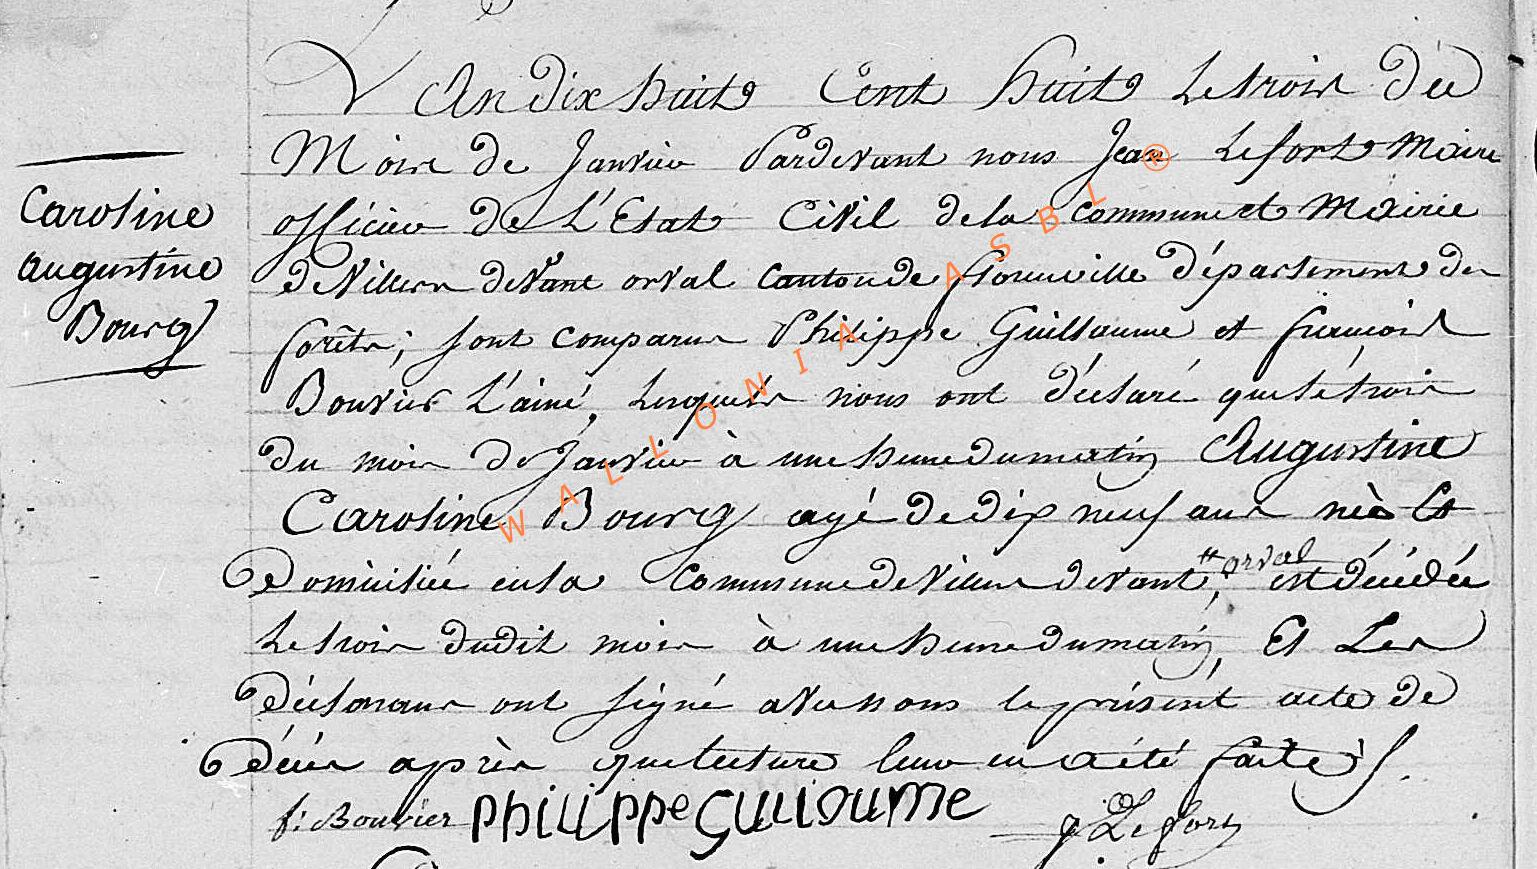 Caroline
Augustine
Bourg
L'An dix huit Cent huit Le trois du
Mois de Janvier Pardevant nous Jean Lefort Maire
officier de L'Etat Civil de la Commune et Mairie
de Villers devant orval Canton de florenville département des
forêts; sont comparus Philippe Guillaume et francois
Bouvier L'ainé, Lesquels nous ont déclaré que le trois
du mois de Janvier à une heure du matin Augustine
Caroline Bourg agé de dix neuf ans née et
Domiciliée en la Commune de Villers devant orval, est décédée
Le trois dudit mois à une heure du matin, Et Les
déclarans ont signé avec nous le présent acte de
décès après que lecture leur en a été faite
f: Bouvier Philippe Guilloume J Lefort
WALLONIA ASBL ®